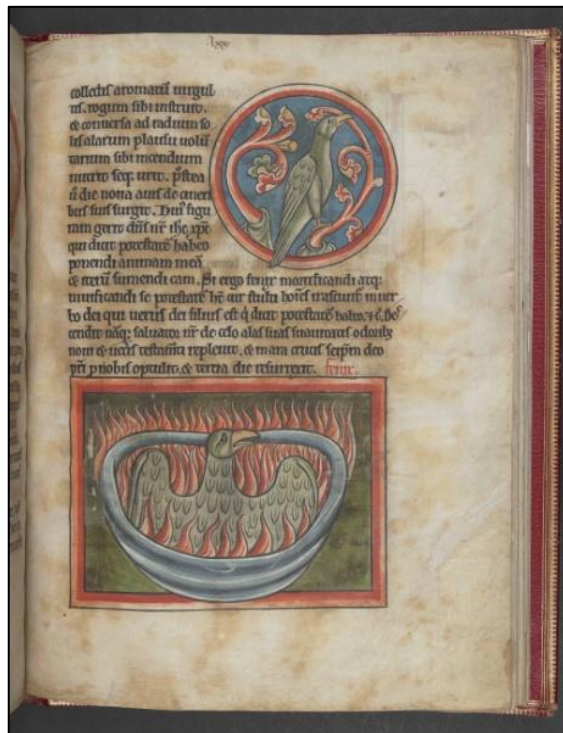 collectis aromatū uirgul
tis. rogum sibi instruit.
& conuersa ad radium so
lis alarum plausu uolū
tarium sibi incendium
nutrit seq; urit. p̄stea
ū die nona auis de cineri
bus suis surgit. Huiꝰ figu
ram gerit dn̄s nr̄ ihc xp̄c
qui dicit potestatē habeo
ponendi animam meā
& iterū sumendi eam. Si ergo fenix mortificandi atq;
uiuificandi se potestatē ht̄ cur stulti hoīes irascunt̄ in uer
bo dei qui uerus dei filius est q̄ dicit potestatē habeo. Des
cendit nāq; saluator nr̄ de celo alas suas suauitatis odorib;
noui & ueteris testam̄ti repleuit. & in ara crucis seip̄m deo
pr̄i ꝓ nobis optulit. & tercia die resurrexit. Fenix.